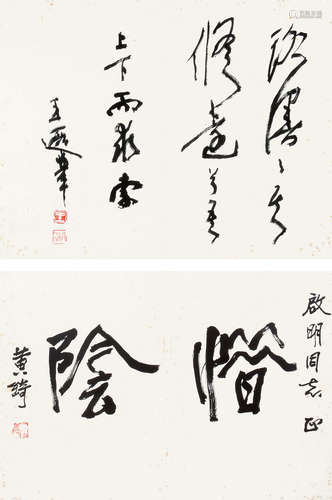 路漫漫其
修远兮吾
上下而求索
王遐举
启明同志正
惜陰
黄绮